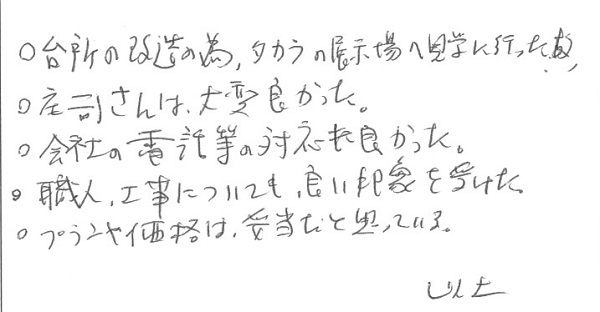 ○台所の改造の為、タカラの展示場へ見学に行った故、
○庄司さんは、大変良かった。
○会社の電話等の対応も良かった。
○職人、工事についても、良い印象を受けた。
○プランや価格は、妥当だと思っている。
以上